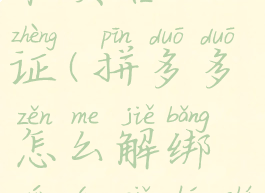 zhèng pīn duō duō
证(拼多多
zěn me jiě bǎng
怎么解绑